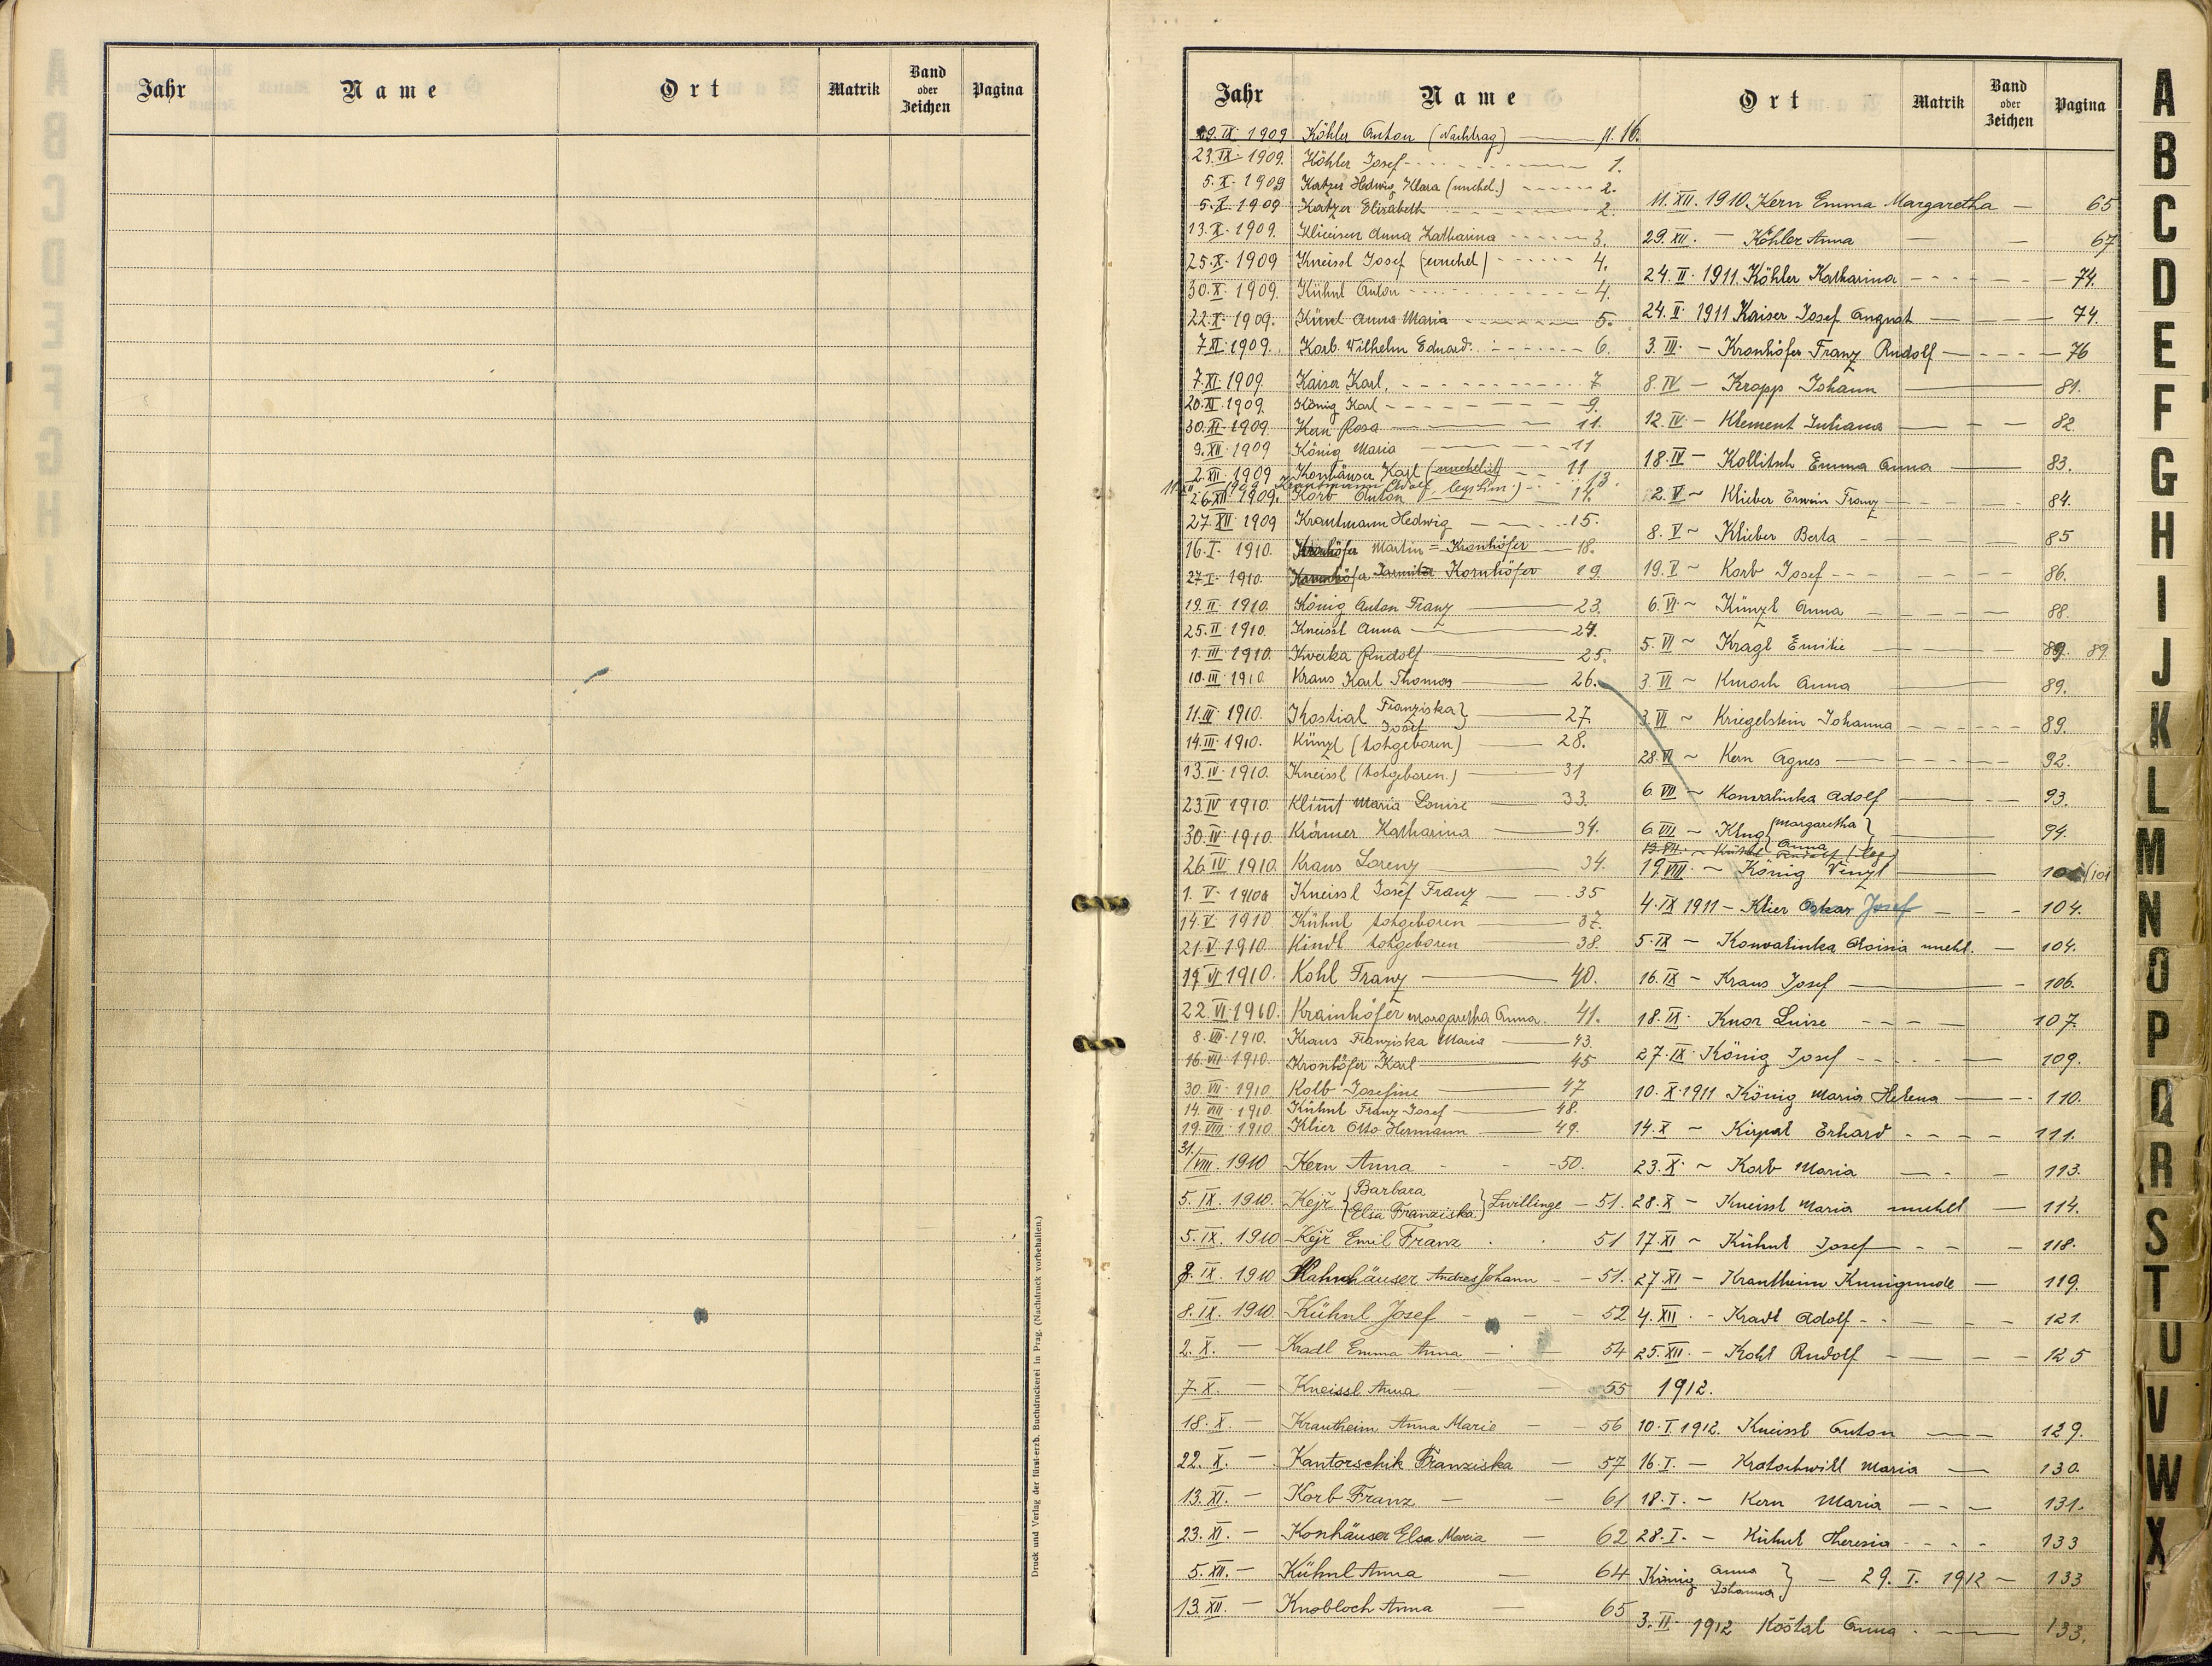 Jahr Name Ort Matrik Band oder Zeichen Pagina
Druck und Verlag der fürst-erzb. Buchdruckerei in Prag. (Nachdruck vorbehalten.)
Jahr Name Ort Matrik Band oder Zeichen Pagina
29. IX. 1909 Köhler Anton (Nachtrag) — fl. 16.
23. IX. 1909. Köhler Josef 1.
5. X. 1909 Katzer Hedwig Klara (unehel.) 2.
5. X. 1909 Katzer Elisabeth 2.
13. X. 1909. Anna Katharina 3.
25. X. 1909 Kneissl Josef (unehel) 4.
30. X. 1909. Kühnl Anton 4.
22. X. 1909. Anna Maria 5.
7 XI. 1909. Korb Wilhelm Eduard 6.
7. XI. 1909. Kaiser Karl, 7
20. XI. 1909. König Karl 9.
30. XI. 1909. Kern Rosa 11.
9. XII. 1909 König Maria 11
2. XII. 1909 Konhäuser Karl (unehelich) 11
11. XII 1909 Krautmann Adolf, legitim.) 13.
26. XII. 1909. Korb Anton 14.
27. XII 1909 Krautmann Hedwig 15.
16. I. 1910. Martin = Kronhöfer 18.
27. I. 1910. Kornhöfer 19.
19. II. 1910. König Anton Franz 23.
25. II. 1910. Kneissl Anna 24.
1. III. 1910. Kweika Rudolf 25.
10. III 1910 Kraus Karl Thomas 26.
11. III. 1910. Kostial Franziska } 27.
Josef
14. III. 1910. Künzl (totgeboren) 28.
13. IV. 1910. Kneissl (totgeboren.) 31
23. IV 1910. Klimt Maria Louise 33.
30. IV. 1910. Krämer Katharina 34.
26. IV 1910. Kraus Lorenz 34.
1. V. 1910 Kneissl Josef Franz 35
14. V. 1910 Kühnl totgeboren 37.
21. V. 1910. Kindl totgeboren 38.
19 VI 1910. Kohl Franz 40.
22. VI. 1910. Krainhöfer Margaretha Anna. 41.
8. VII. 1910. Kraus Franziska Maria 43.
16. VII. 1910. Kronhöfer Karl 45
30. VII. 1910 Kolb Josefine 47
14. VIII. 1910. Kühnl Franz Josef 48.
19. VIII. 1910. Klier Otto Hermann 49.
31./VIII. 1910 Kern Anna 50.
5. IX. 1910. Kejř { Barbara
Elsa Franziska } Zwillinge — 51.
5. IX. 1910 Kejř Emil Franz 51
8. IX. 1910 Hahnhäuser Andres Johann 51.
8. IX. 1910 Kühnl Josef 52
2. X. — Kradl Emma Anna 54
7. X. — Kneissl Anna 55
18. X. — Krautheim Anna Marie 56
22. X. — Kantorschik Franziska 57
13. XI. — Korb Franz 61
23. XI. — Konhäuser Elsa Maria 62
5. XII. — Kühnl Anna 64
13. XII. — Knobloch Anna 65
11. XII. 1910. Kern Emma Margaretha — 65
29. XII. — Köhler Anna 67
24. II. 1911. Köhler Katharina 74.
24. II. 1911 Kaiser Josef August 74.
3. III. — Kronhöfer Franz Rudolf 76
8. IV — Krapp Johann 81.
12. IV — Klement Juliana 82.
18. IV — Kollitsch Emma Anna 83.
2. V ~ Klieber Erwin Franz 84.
8. V ~ Klieber Berta 85
19. V ~ Korb Josef 86.
6. VI ~ Künzl Anna 88.
5. VI ~ Kragl Emilie 89. 89
3. VI ~ Kmoch Anna 89.
3. VI ~ Kriegelstein Johanna 89.
28. VI ~ Kern Agnes 92.
6. VII ~ Konvalinka Adolf 93.
6. VIII ~ Klug { Margaretha } 94.
Anna
19. VIII. ~ König Wenzl 101
4. IX 1911 — Klier Oskar Josef 104.
5. IX — Konvalinka Aloisia unehl. 104.
16. IX — Kraus Josef 106.
18. IX. Knor Luise 107.
27. IX. König Josef 109.
10. X. 1911 König Maria Helena 110.
14. X ~ Kirpal Erhard 111.
23. X. ~ Korb Maria 113.
28. X — Kneissl Maria unehel 114.
17. XI ~ Kühnl Josef 118.
27 XI — Krautheim Kunigunde 119.
4. XII. — Kradl Adolf 121.
25. XII. — Kohl Rudolf 125
1912.
10. I. 1912. Kneissl Anton 129.
16. I. — Kratochwill Maria 130.
18. I. ~ Kern Maria 131.
28. I. — Kühnl Theresia 133
König Anna
Johanna } — 29. I. 1912 ~ 133
3. II. 1912 Köstal Anna 133.
A
B
C
D
E
F
G
H
I
J
K
L
M
N
O
P
Q
R
S
T
U
V
W
X